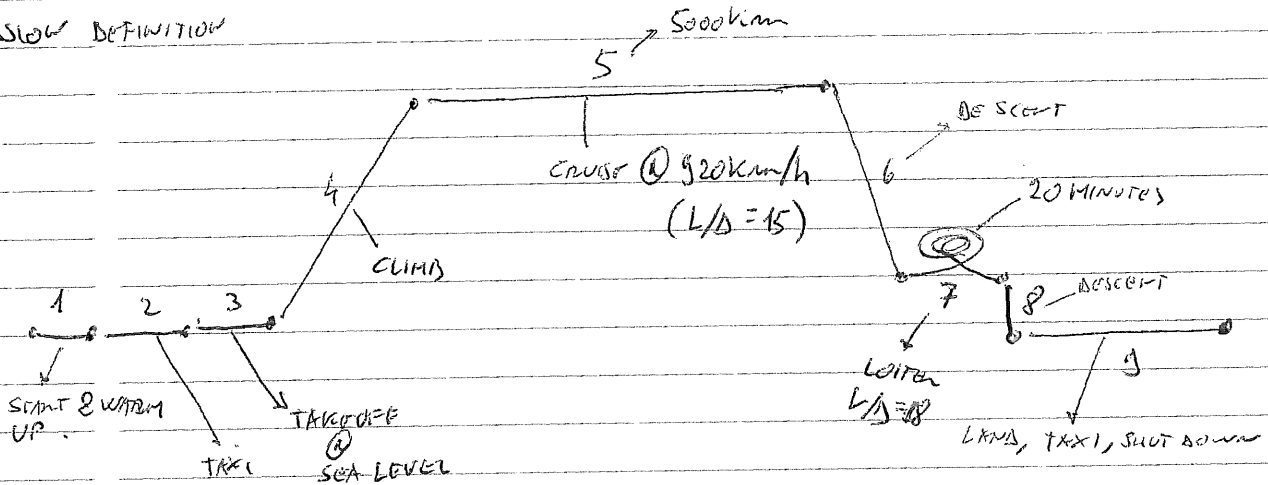 DEFINITION
5
5000 Km
CRUISE @ 920 Km/h
(L/D = 15)
DESCENT
6
20 MINUTES
4
CLIMB
1
2
3
7
8
DESCENT
9
START & WARM
UP.
TAXI
TAKEOFF
@
SEA LEVEL
LOITER
L/D = 18
LAND, TAXI, SHUT DOWN